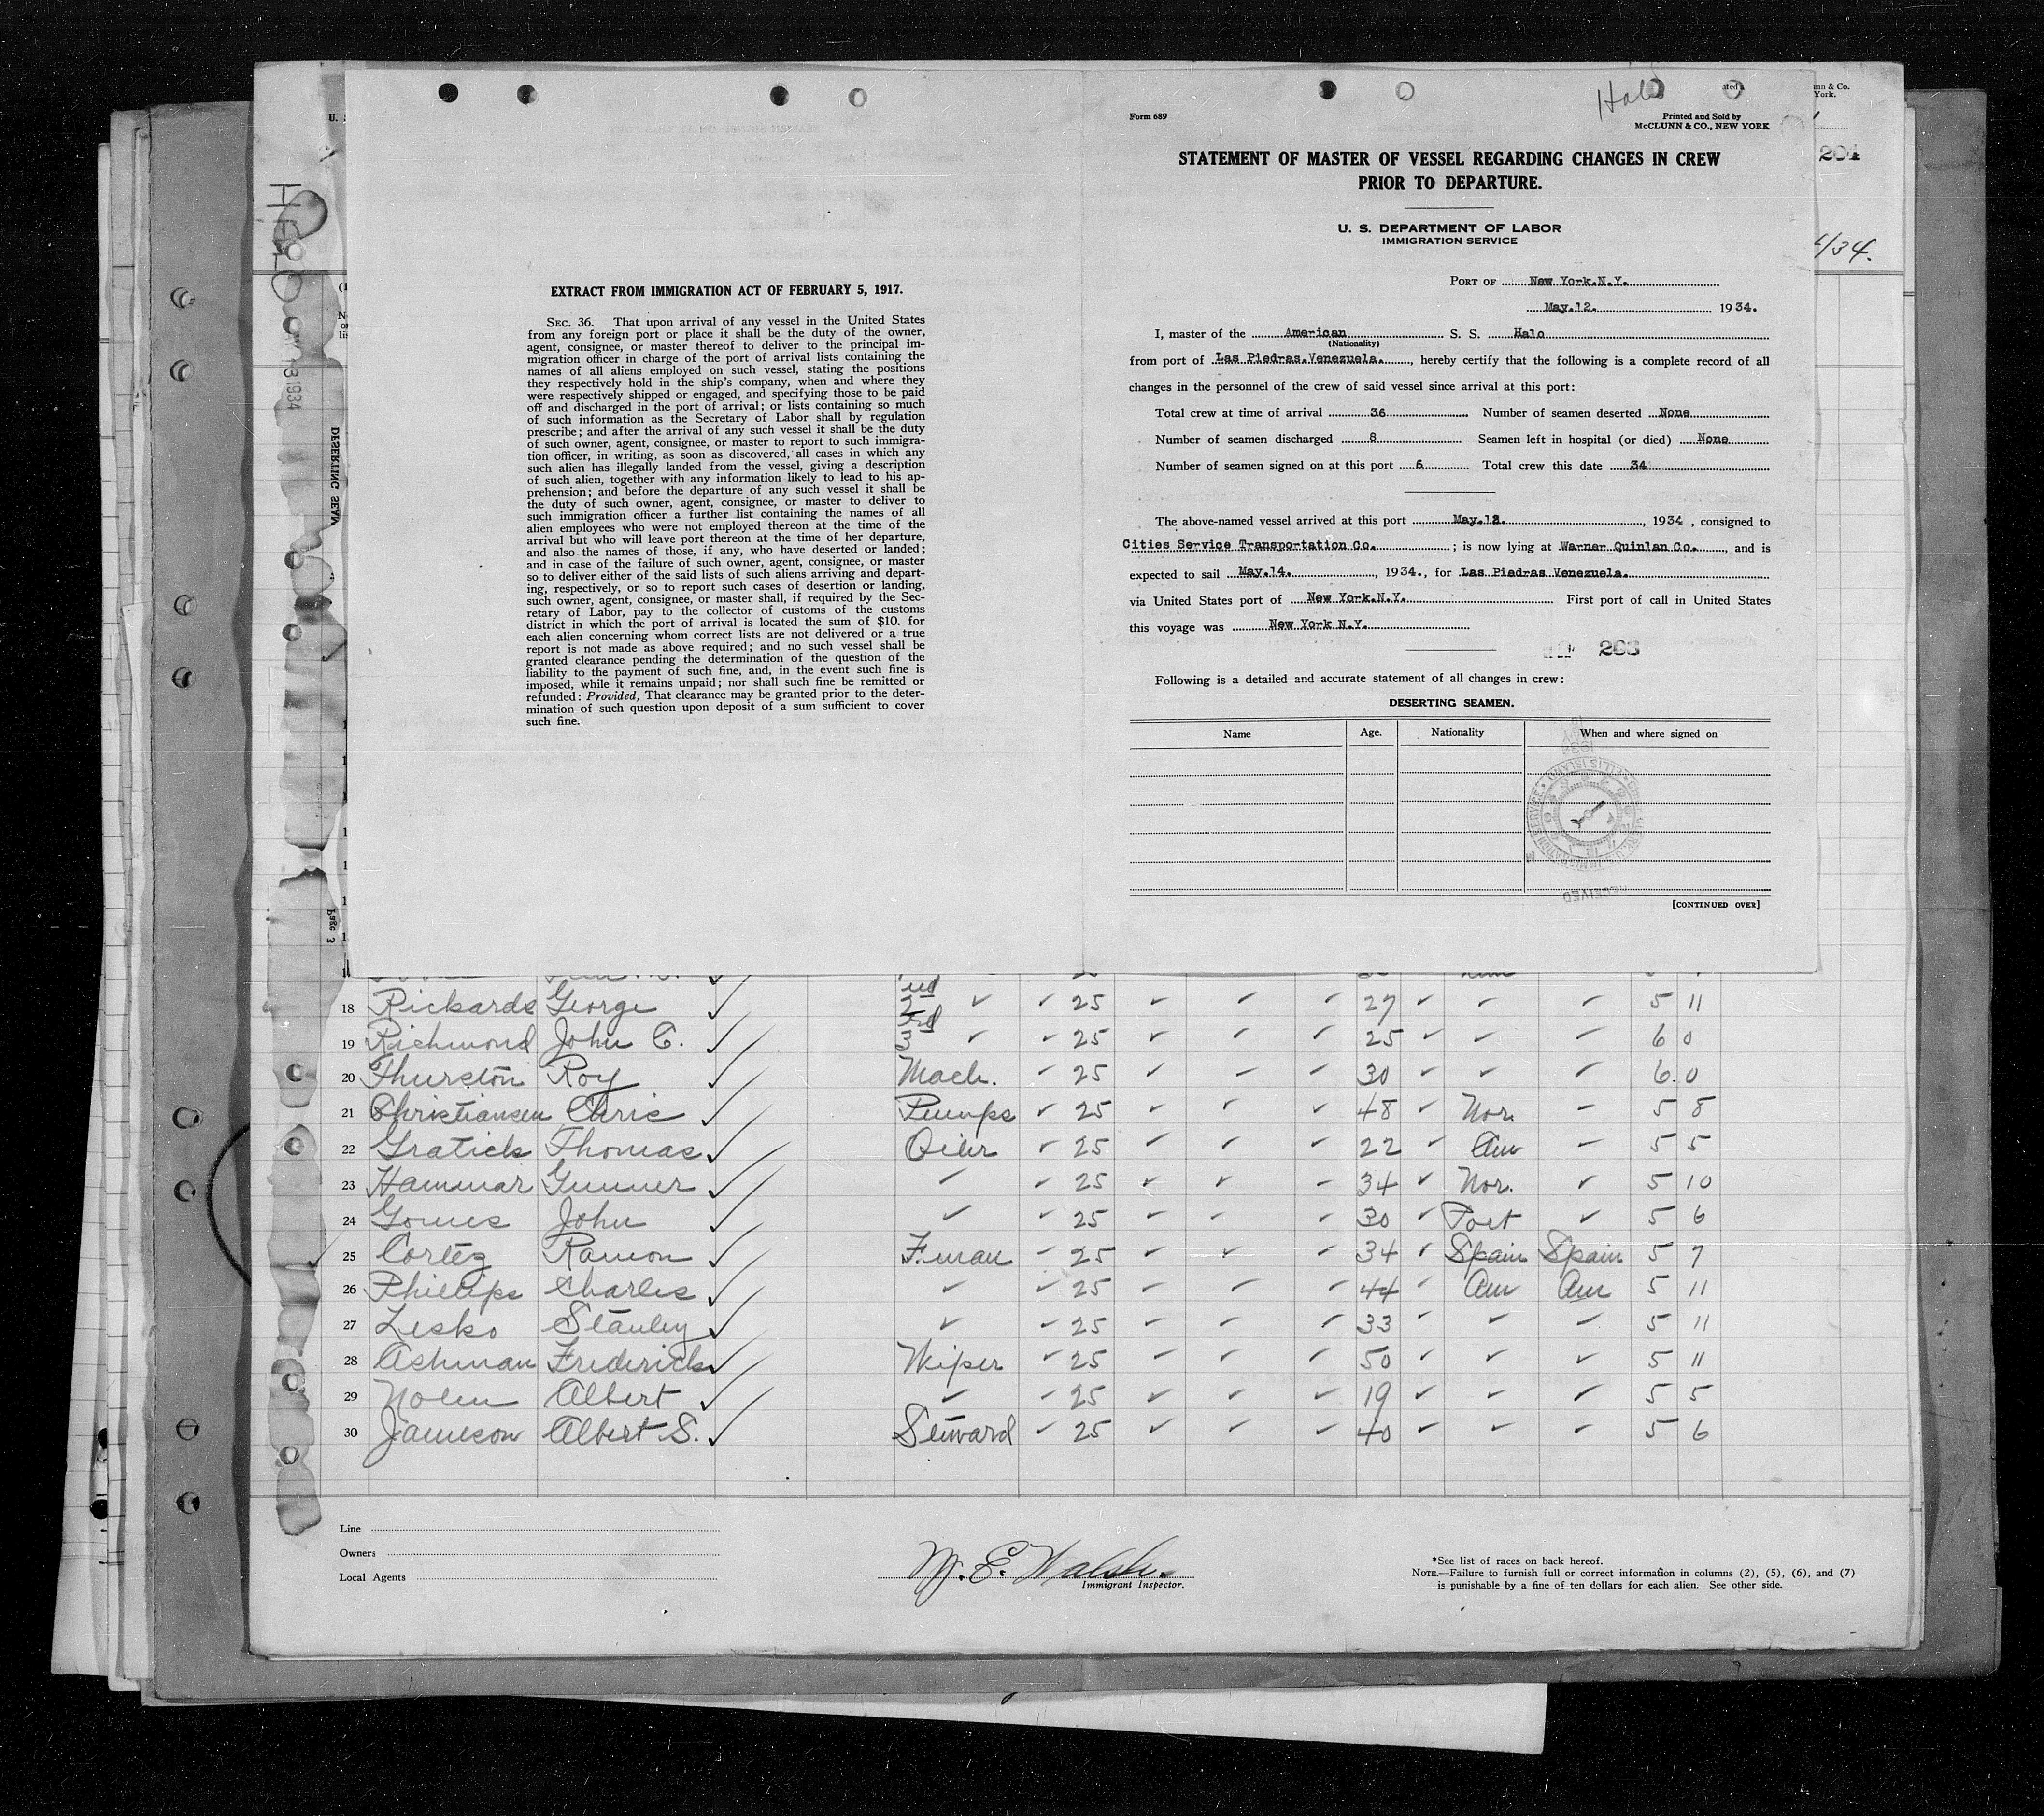 Halo
Form 689
Printed and Sold by
McCLUNN & CO., NEW YORK
STATEMENT OF MASTER OF VESSEL REGARDING CHANGES IN CREW
PRIOR TO DEPARTURE.
U. S. DEPARTMENT OF LABOR
IMMIGRATION SERVICE
PORT OF New York.N.Y.
May.12. 1934.
I, master of the American S. S. Halo
(Nationality)
from port of Las Piedras.Venezuela., hereby certify that the following is a complete record of all
changes in the personnel of the crew of said vessel since arrival at this port:
Total crew at time of arrival 36 Number of seamen deserted None
Number of seamen discharged 8 Seamen left in hospital (or died) None
Number of seamen signed on at this port 6 Total crew this date 34
The above-named vessel arrived at this port May.12., 1934, consigned to
Cities Service Transpo-tation Co.; is now lying at Warner Quinlan Co., and is
expected to sail May.14., 1934., for Las Piedras Venezuela.
via United States port of New York.N.Y. First port of call in United States
this voyage was New York N.Y.
263
Following is a detailed and accurate statement of all changes in crew:
DESERTING SEAMEN.
Name Age. Nationality When and where signed on
[CONTINUED OVER]
EXTRACT FROM IMMIGRATION ACT OF FEBRUARY 5, 1917.
SEC. 36. That upon arrival of any vessel in the United States
from any foreign port or place it shall be the duty of the owner,
agent, consignee, or master thereof to deliver to the principal im-
migration officer in charge of the port of arrival lists containing the
names of all aliens employed on such vessel, stating the positions
they respectively hold in the ship's company, when and where they
were respectively shipped or engaged, and specifying those to be paid
off and discharged in the port of arrival; or lists containing so much
of such information as the Secretary of Labor shall by regulation
prescribe; and after the arrival of any such vessel it shall be the duty
of such owner, agent, consignee, or master to report to such immigra-
tion officer, in writing, as soon as discovered, all cases in which any
such alien has illegally landed from the vessel, giving a description
of such alien, together with any information likely to lead to his ap-
prehension; and before the departure of any such vessel it shall be
the duty of such owner, agent, consignee, or master to deliver to
such immigration officer a further list containing the names of all
alien employees who were not employed thereon at the time of the
arrival but who will leave port thereon at the time of her departure,
and also the names of those, if any, who have deserted or landed;
and in case of the failure of such owner, agent, consignee, or master
so to deliver either of the said lists of such aliens arriving and depart-
ing, respectively, or so to report such cases of desertion or landing,
such owner, agent, consignee, or master shall, if required by the Sec-
retary of Labor, pay to the collector of customs of the customs
district in which the port of arrival is located the sum of $10. for
each alien concerning whom correct lists are not delivered or a true
report is not made as above required; and no such vessel shall be
granted clearance pending the determination of the question of the
liability to the payment of such fine, and, in the event such fine is
imposed, while it remains unpaid; nor shall such fine be remitted or
refunded: Provided, That clearance may be granted prior to the deter-
mination of such question upon deposit of a sum sufficient to cover
such fine.
204
/34.
18 Rickards George 25 27 5 11
19 Richmond John C. 25 25 6 0
20 Thurston Roy Mach. 25 30 6.0
21 Christiansen Chris Pumps 25 48 Nor. 5 8
22 Gratick Thomas Oiler 25 22 Am 5 5
23 Hammar Gunner 25 34 Nor. 5 10
24 Gomes John 25 30 Port 5 6
25 Cortez Ramon F.man 25 34 Spain Spain 5 7
26 Phillips Charles 25 44 Am Am 5 11
27 Lesko Stanley 25 33 5 11
28 Ashman Frederick Wiper 25 50 5 11
29 Nolen Albert 25 19 5 5
30 Jameson Albert S. Steward 25 40 5 6
Line
Owners
Local Agents
W. E. Walsh.
Immigrant Inspector.
*See list of races on back hereof.
NOTE.—Failure to furnish full or correct information in columns (2), (5), (6), and (7)
is punishable by a fine of ten dollars for each alien. See other side.